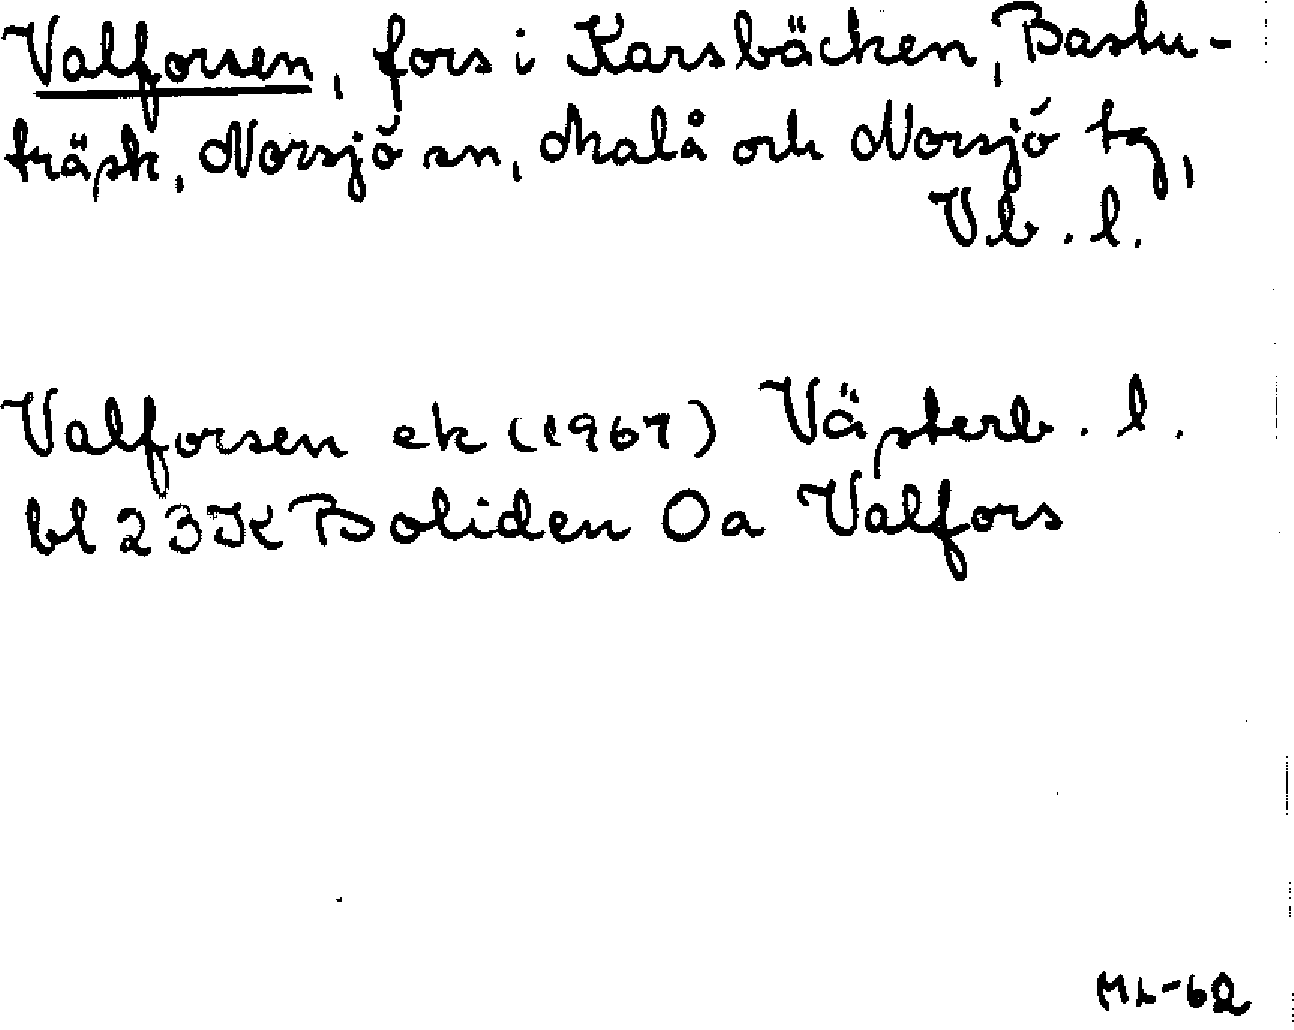 Valforsen, fors i Karsbäcken, Bastu-
träsk, Norsjö sn, Malå och Norsjö tg,
Vb. l.
Valforsen ek (1967) Västerb. l.
bl 23K Boliden 0a Valfors